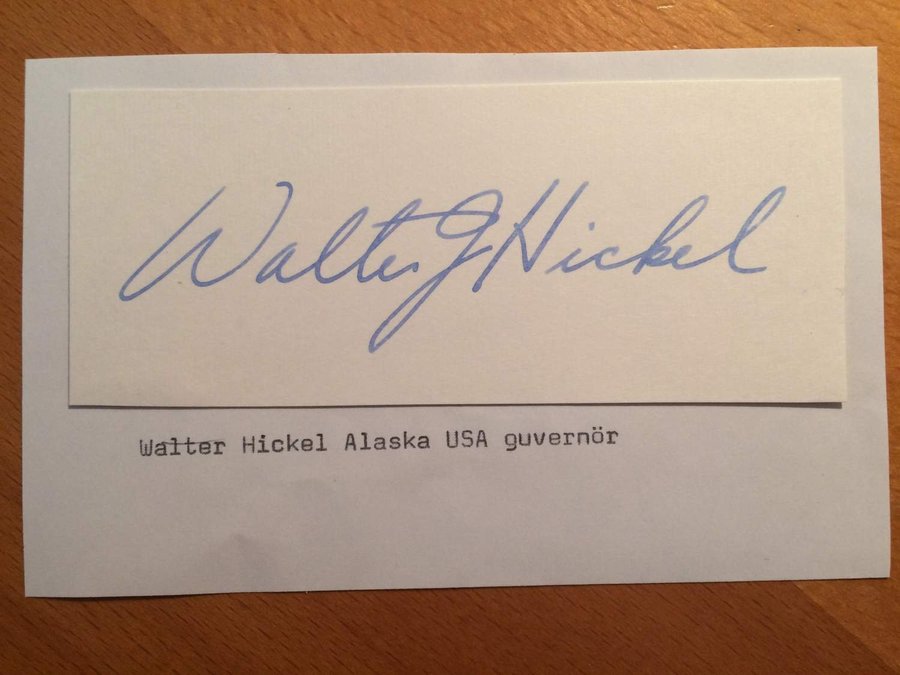 Walter J Hickel
Walter Hickel Alaska USA guvernör